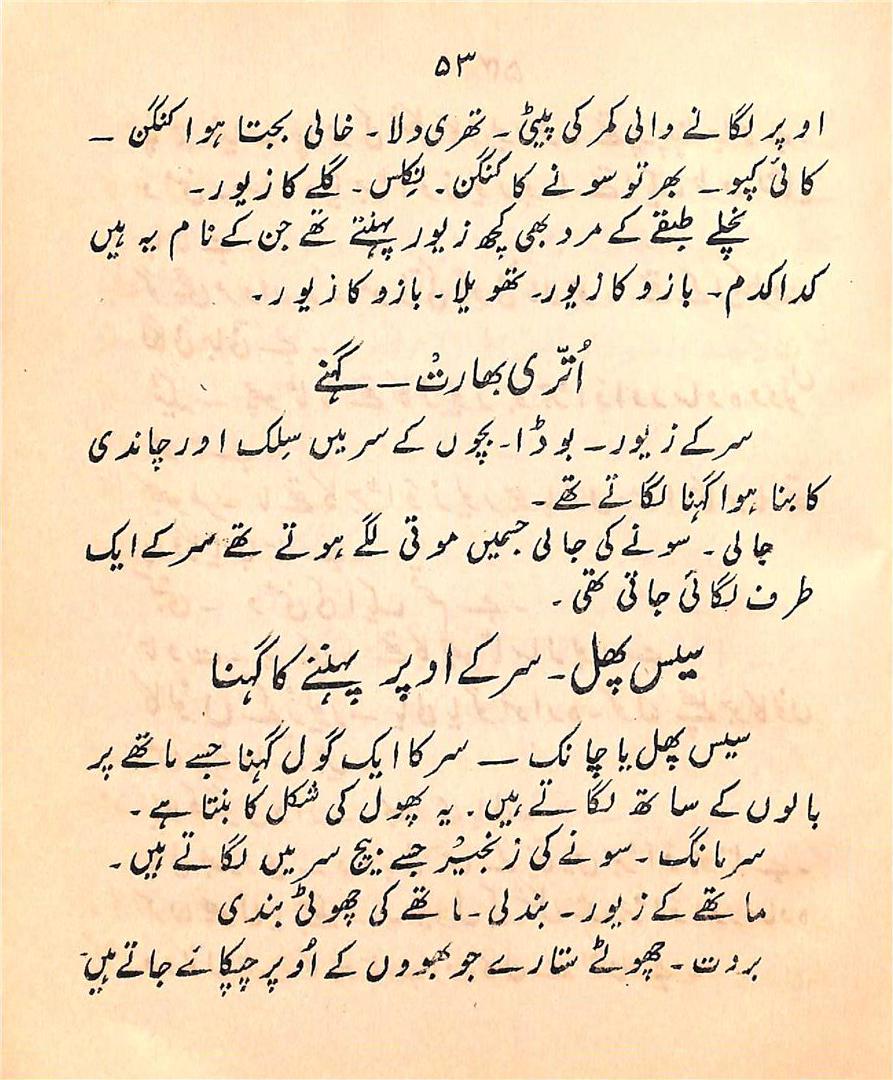 ۵۳
اوپر لگانے والی کمر کی پیٹی۔ تھری ولا۔ خالی بجتا ہوا کنگن ۔
کائی کپو۔ بھرتو سونے کا کنگن۔ نِکلس۔ گلے کا زیور۔
نچلے طبقے کے مرد بھی کچھ زیور پہنتے تھے جن کے نام یہ ہیں
کداکدم۔ بازو کا زیور۔ تھویلا۔ بازو کا زیور۔
اُتّری بھارت ۔ گہنے
سر کے زیور۔ بوڈا۔ بچوں کے سر میں سِلک اور چاندی
کا بنا ہوا گہنا لگاتے تھے۔
جالی۔ سونے کی جالی جسمیں موتی لگے ہوتے تھے سر کے ایک
طرف لگائی جاتی تھی۔
سیس پھل۔ سر کے اوپر پہننے کا گہنا
سیس پھل یا چانک ۔ سر کا ایک گول گہنا جسے ماتھے پر
بالوں کے ساتھ لگاتے ہیں۔ یہ پھول کی شکل کا بنتا ہے۔
سرمانگ۔ سونے کی زنجیر جسے بیچ سر میں لگاتے ہیں۔
ماتھے کے زیور۔ بندلی۔ ماتھے کی چھوٹی بندی
بروت۔ چھوٹے ستارے جو بھووں کے اُوپر چپکائے جاتے ہیں۔